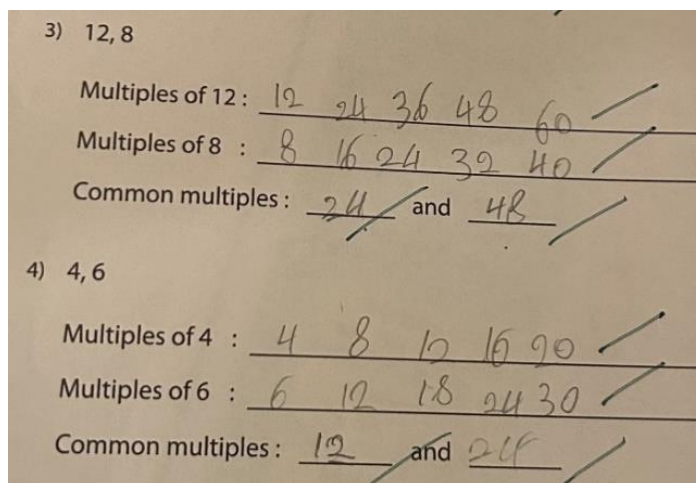 3) 12, 8
Multiples of 12 : 12 24 36 48 60
Multiples of 8 : 8 16 24 32 40
Common multiples : 24 and 48
4) 4, 6
Multiples of 4 : 4 8 12 16 20
Multiples of 6 : 6 12 18 24 30
Common multiples : 12 and 24